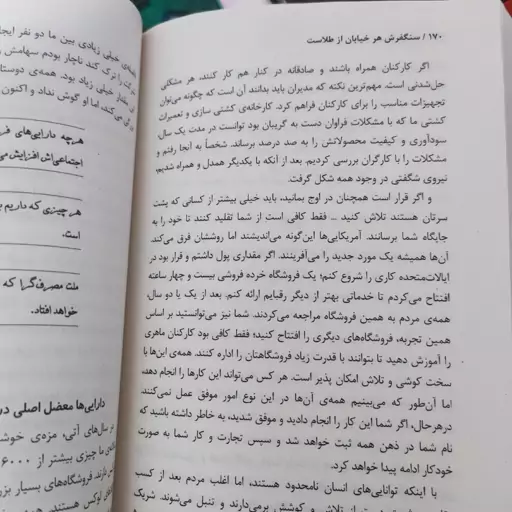 ۱۷۰ / سنگفرش هر خیابان از طلاست
اگر کارکنان همراه باشند و صادقانه در کنار هم کار کنند، هر مشکلی
حل‌شدنی است. مهم‌ترین نکته که مدیران باید بدانند آن است که چگونه می‌توان
تجهیزات مناسب را برای کارکنان فراهم کرد. کارخانه‌ی کشتی سازی و تعمیرات
کشتی ما که با مشکلات فراوان دست به گریبان بود توانست در مدت یک سال،
سودآوری و کیفیت محصولاتش را به صد درصد برساند. شخصاً به آنجا رفتم و
مشکلات را با کارگران بررسی کردیم. بعد از آنکه با یکدیگر همدل و همراه شدیم،
نیروی شگفتی در وجود همه شکل گرفت.
و اگر قرار است همچنان در اوج بمانید، باید خیلی بیشتر از کسانی که پشت
سرتان هستند تلاش کنید ... فقط کافی است از شما تقلید کنند تا خود را به
جایگاه شما برسانند. آمریکایی‌ها این‌گونه می‌اندیشند اما روششان فرق می‌کند.
آن‌ها همیشه یک مورد جدید را می‌آفرینند. اگر مقداری پول داشتم و قرار بود در
ایالات‌متحده کاری را شروع کنم؛ یک فروشگاه خرده فروشی بیست و چهار ساعته
افتتاح می‌کردم تا خدماتی بهتر از دیگر رقبایم ارائه کنم. بعد از یک یا دو سال،
همه‌ی مردم به همین فروشگاه مراجعه می‌کردند. شما نیز می‌توانستید بر اساس
همین تجربه، فروشگاه‌های دیگری را افتتاح کنید؛ فقط کافی بود کارکنان ماهری
را آموزش دهید تا بتوانند با قدرت زیاد فروشگاهتان را اداره کنند. همه‌ی این‌ها با
سخت کوشی و تلاش امکان پذیر است. هر کس می‌تواند این کارها را انجام دهد،
اما آن‌طور که می‌بینیم همه‌ی آن‌ها در این نوع امور موفق عمل نمی‌کنند
درهرحال، اگر شما این کار را انجام دادید و موفق شدید، به خاطر داشته باشید که
نام شما در ذهن همه ثبت خواهد شد و سپس تجارت و کار شما به صورت
خودکار ادامه پیدا خواهد کرد.
با اینکه توانایی‌های انسان نامحدود هستند، اما اغلب مردم بعد از کسب
از تلاش و کوشش برمی‌دارند و تنبل می‌شوند. شریک
فاصله‌ی خیلی زیادی بین ما دو نفر ایجاد
ترک کند ناچار بودم سهامش را
مقدار خیلی زیاد بود. همه‌ی دوستان
اما او گوش نداد و اکنون
هرچه دارایی‌های
اجتماعی‌اش افزایش می
هر چیزی که داریم
است.
ملت مصرف‌گرا که
خواهد افتاد.
دارایی‌ها معضل اصلی
در سال‌های آتی، مزه‌ی
ما چیزی بیشتر از ۶۰۰۰
فروشگاه‌های بسیار
لوکس هستند.